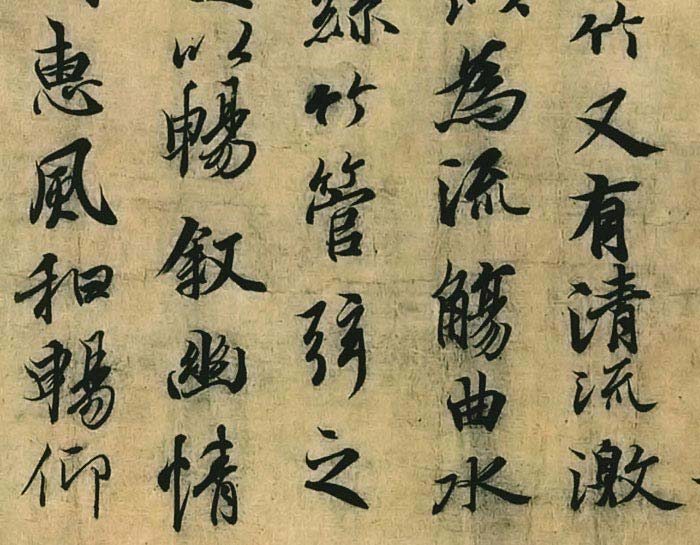 竹又有清流激
以為流觴曲水
絲竹管弦之
以暢敘幽情
惠風和暢仰